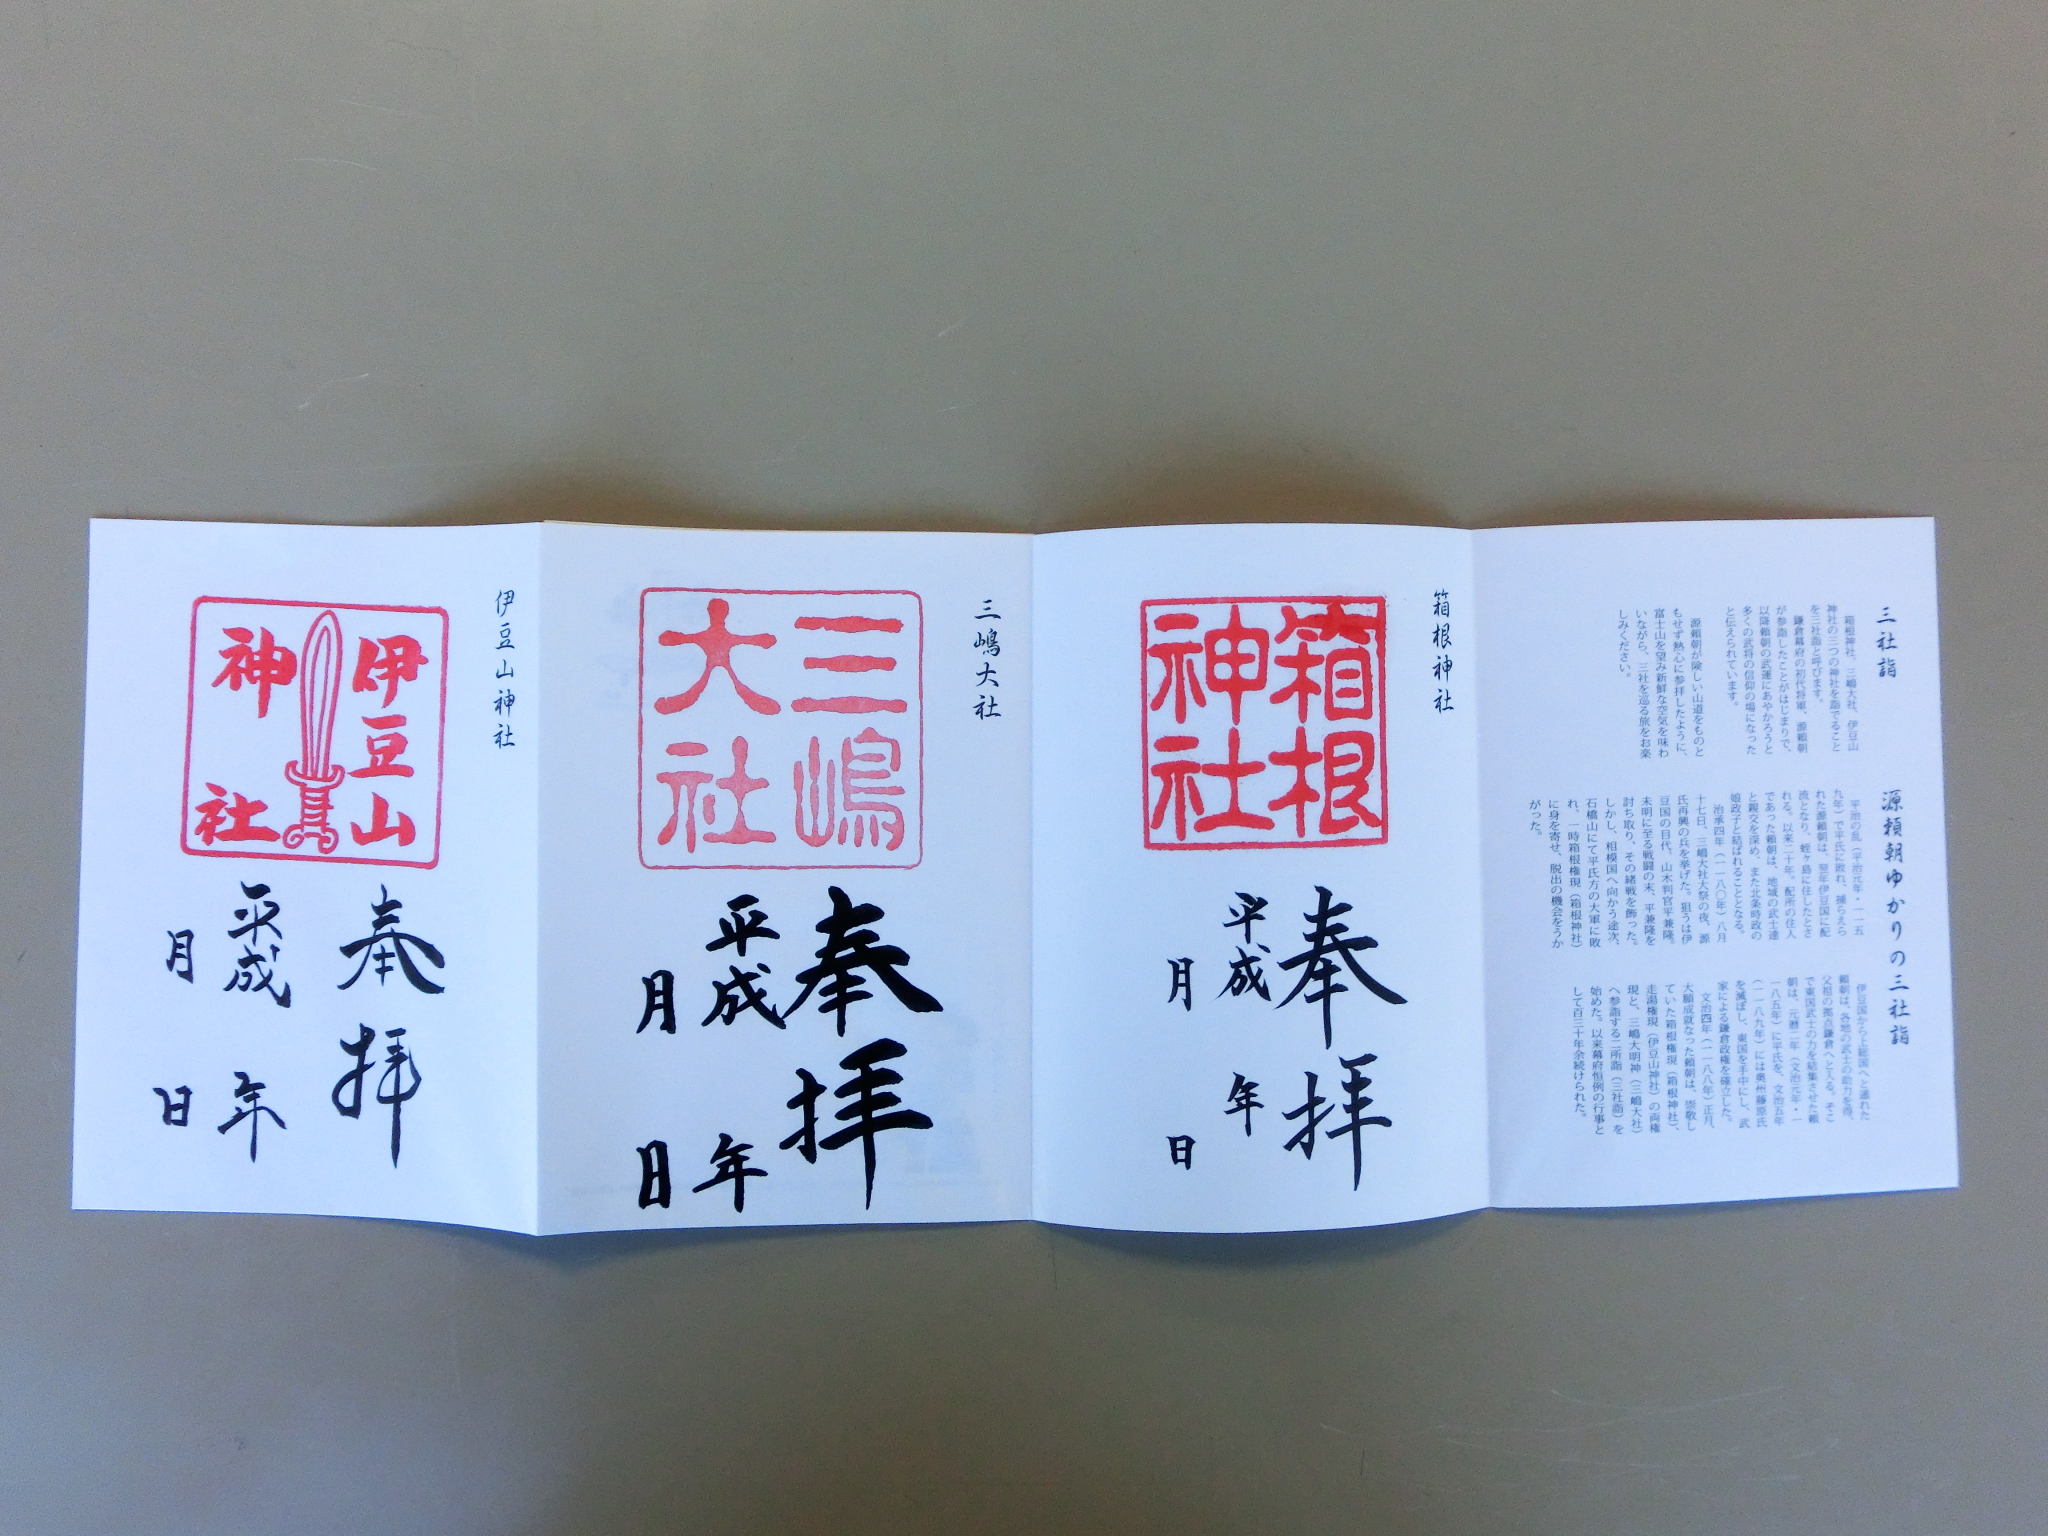 三社詣
箱根神社、三嶋大社、伊豆山
神社の三つの神社を詣でること
を三社詣と呼びます。
鎌倉幕府の初代将軍、源頼朝
が参詣したことがはじまりで、
以降頼朝の武運にあやかろうと
多くの武将の信仰の場になった
と伝えられています。
源頼朝が険しい山道をものと
もせず熱心に参拝したように、
富士山を望み新鮮な空気を味わ
いながら、三社を巡る旅をお楽
しみください。
源頼朝ゆかりの三社詣
平治の乱（平治元年・一一五
九年）で平氏に敗れ、捕らえら
れた源頼朝は、翌年伊豆国に配
流となり、蛭ヶ島に住したとさ
れる。以来二十年。配所の住人
であった頼朝は、地域の武士達
と親交を深め、また北条時政の
娘政子と結ばれることとなる。
治承四年（一一八〇年）八月
十七日、三嶋大社大祭の夜、源
氏再興の兵を挙げた。狙うは伊
豆国の目代、山木判官平兼隆。
未明に至る戦闘の末、平兼隆を
討ち取り、その緒戦を飾った。
しかし、相模国へ向かう途次、
石橋山にて平氏方の大軍に敗
れ、一時箱根権現（箱根神社）
に身を寄せ、脱出の機会をうか
がった。
伊豆国から上総国へと逃れた
頼朝は、各地の武士の助力を得、
父祖の拠点鎌倉へと入る。そこ
で東国武士の力を結集させた頼
朝は、元暦二年（文治元年・一
一八五年）に平氏を、文治五年
（一一八九年）には奥州藤原氏
を滅ぼし、東国を手中にし、武
家による鎌倉政権を確立した。
文治四年（一一八八年）正月、
大願成就なった頼朝は、崇敬し
ていた箱根権現（箱根神社）、
走湯権現（伊豆山神社）の両権
現と、三嶋大明神（三嶋大社）
へ参詣する二所詣（三社詣）を
始めた。以来幕府恒例の行事と
して百三十年余続けられた。
箱根神社
箱根
神社
奉拝
平成　年
月　日
三嶋大社
三嶋
大社
奉拝
平成　年
月　日
伊豆山神社
伊豆山
神社
奉拝
平成　年
月　日